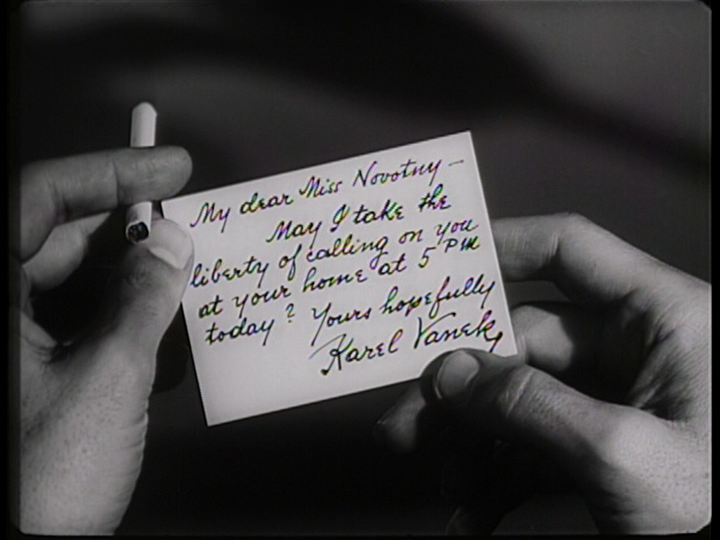 My dear Miss Novotny —
May I take the
liberty of calling on you
at your home at 5 PM
today? Yours hopefully
Karel Vanek